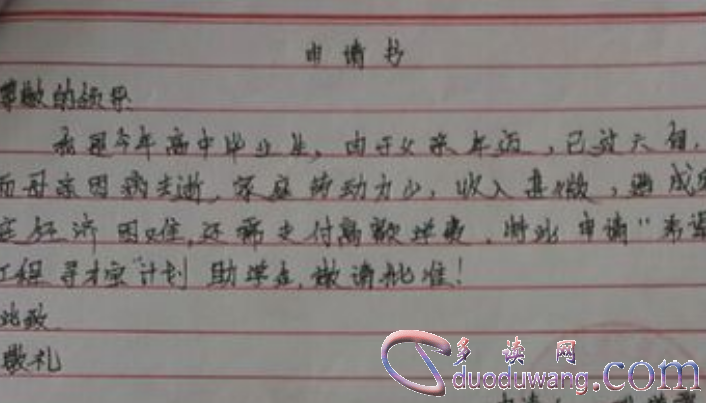 申请书
尊敬的领导
我是今年高中毕业生，由于父亲年迈，已过六旬，
而母亲因病去逝，家庭劳动力少，收入甚微，造成
庭经济困难，还需支付高额学费，特此申请“希望
工程寻才宝”计划助学金，敬请批准！
此致
敬礼
多读网
duoduwang.com
申请人